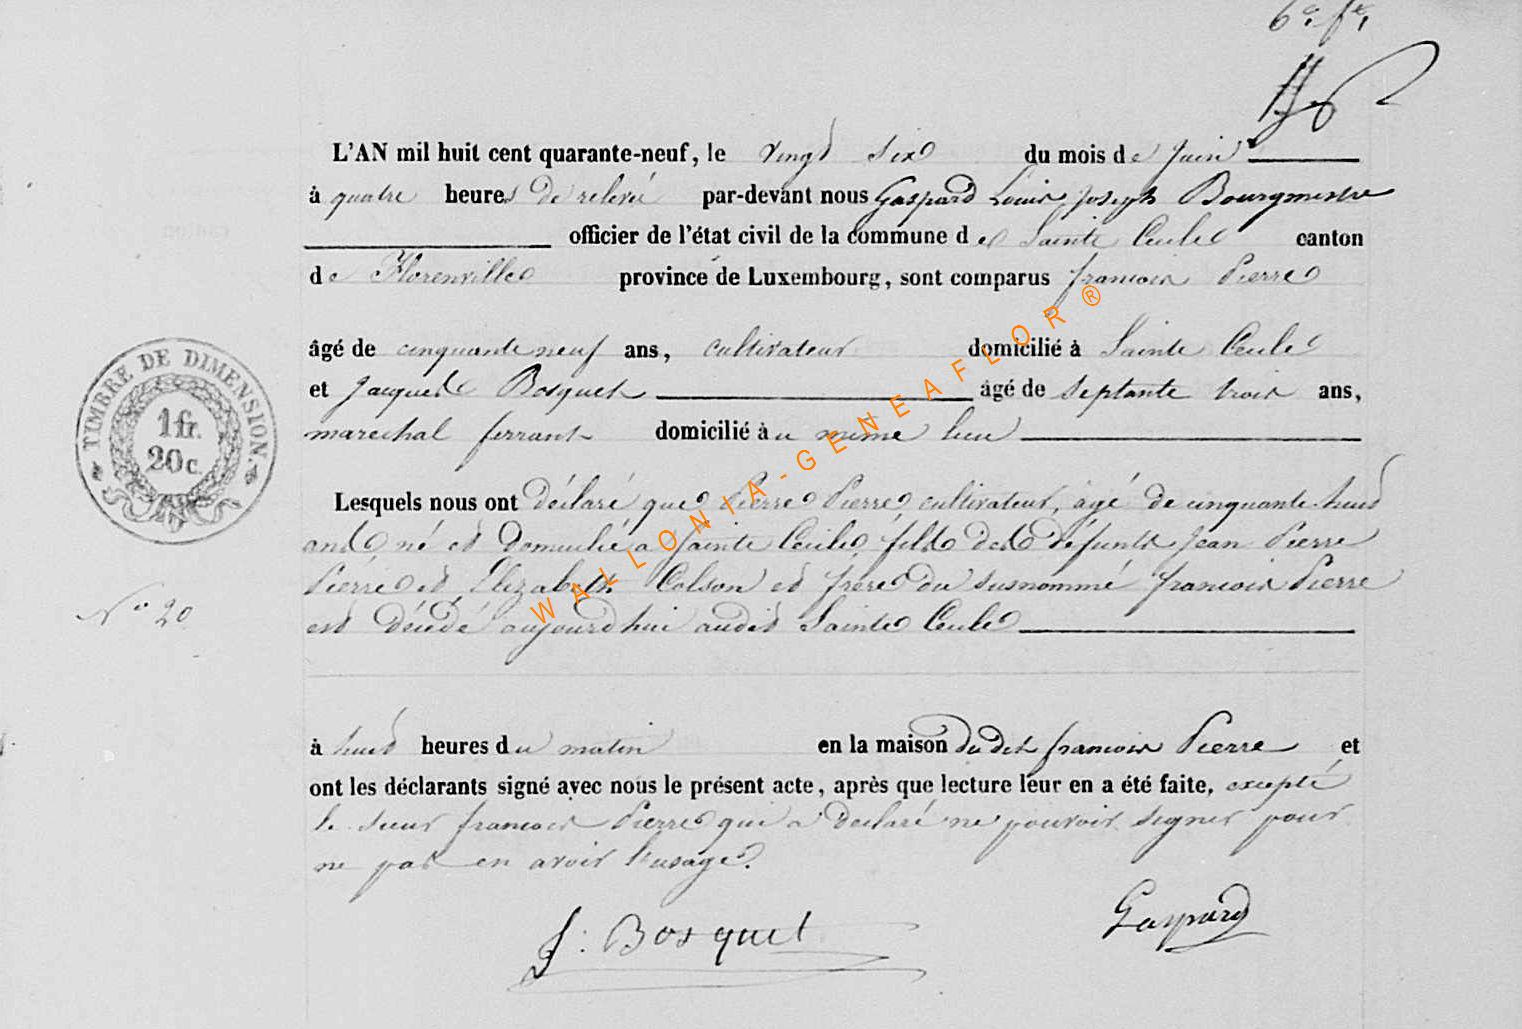 6e. fe.
L'AN mil huit cent quarante-neuf, le vingt six du mois de juin
à quatre heures de relevée par-devant nous Gaspard Louis Joseph Bourgmestre
officier de l'état civil de la commune de Sainte Cecile canton
de Florenville province de Luxembourg, sont comparus francois Pierre
âgé de cinquante neuf ans, cultivateur domicilié à Sainte Cecile
et Jacques Bosquet âgé de septante trois ans,
marechal ferrant domicilié à u meme lieu
Lesquels nous ont déclaré que Pierre Pierre cultivateur, âgé de cinquante-huit
ans né et Domicilié a Sainte Cecile, fils des défunts Jean Pierre
Pierre et Elizabeth Colson et frère du susnommé francois Pierre
est décédé aujourd'hui audit Sainte Cecile
à huit heures du matin en la maison dudit francois Pierre et
ont les déclarants signé avec nous le présent acte, après que lecture leur en a été faite, excepté
le sieur francois Pierre qui a declaré ne pouvoir signer pour
ne pas en avoir l'usage.
J. Bosquet Gaspard
TIMBRE DE DIMENSION.
1 fr.
20 c.
No 20
WALLONIA-GENEAFLOR®